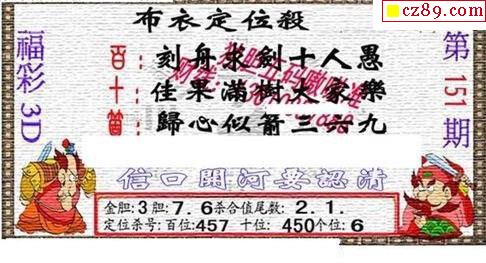 cz89.com
布衣定位殺
福彩3D
第151期
百:刻舟求劍十人愚
十:佳果滿樹大家樂
個:歸心似箭三六九
信口開河要認清
金胆:3胆:7.6杀合值尾数:2.1.
定位杀号:百位:457 十位:450个位:6